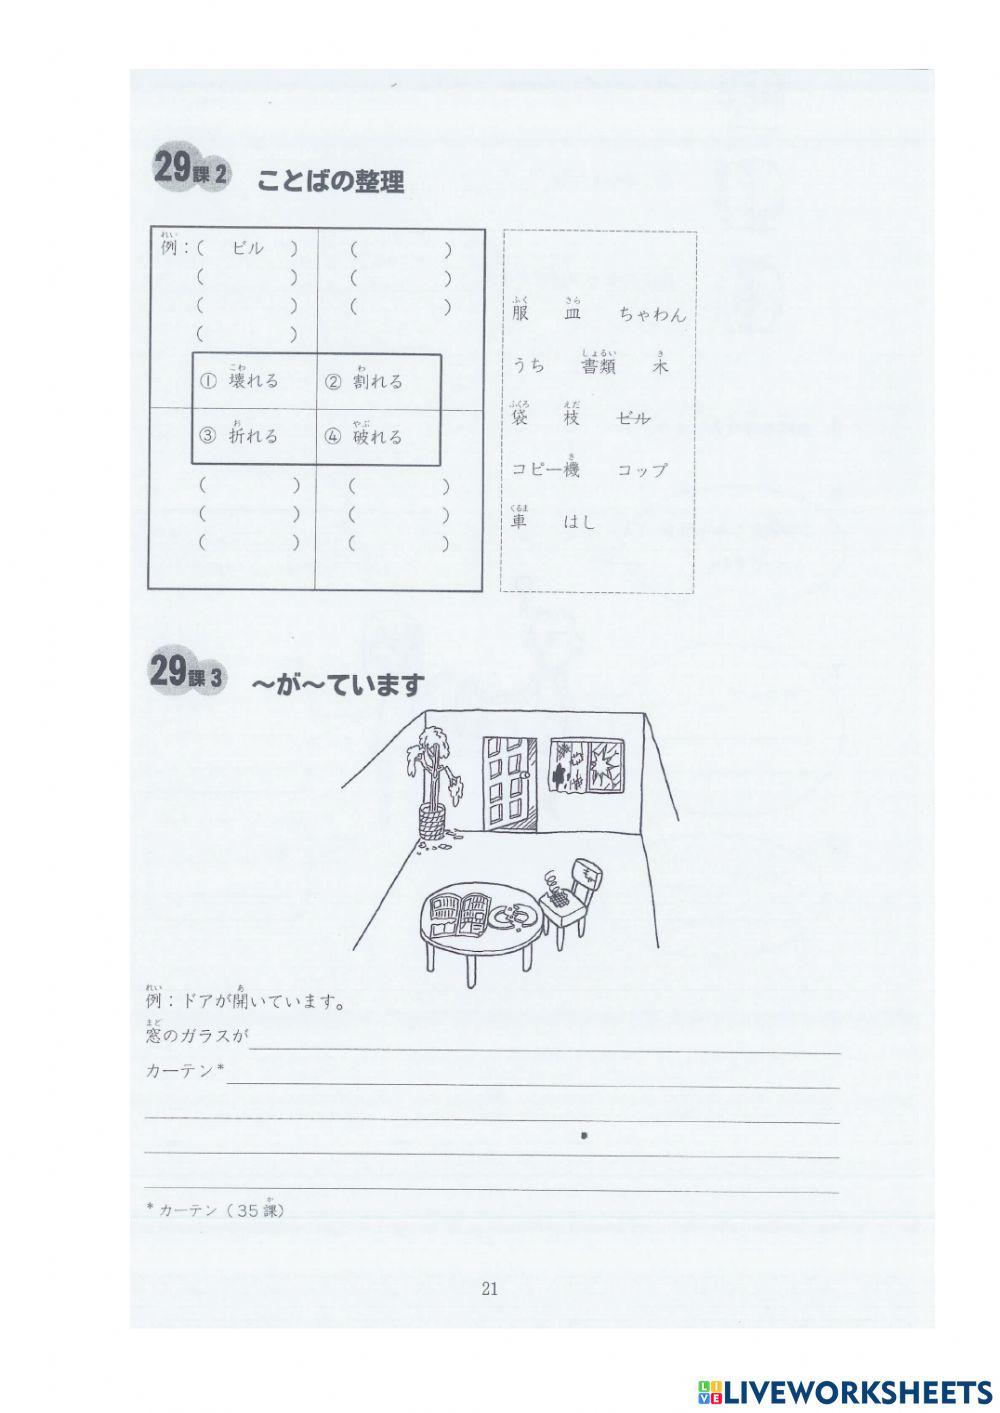 29課2 ことばの整理
例：( ビル ) ( )
( ) ( )
( ) ( )
( )
① 壊れる ② 割れる
③ 折れる ④ 破れる
( ) ( )
( ) ( )
( ) ( )
服 皿 ちゃわん
うち 書類 木
袋 枝 ビル
コピー機 コップ
車 はし
29課3 〜が〜ています
例：ドアが開いています。
窓のガラスが
カーテン*
*カーテン（35課）
21
LIVE LIVEWORKSHEETS